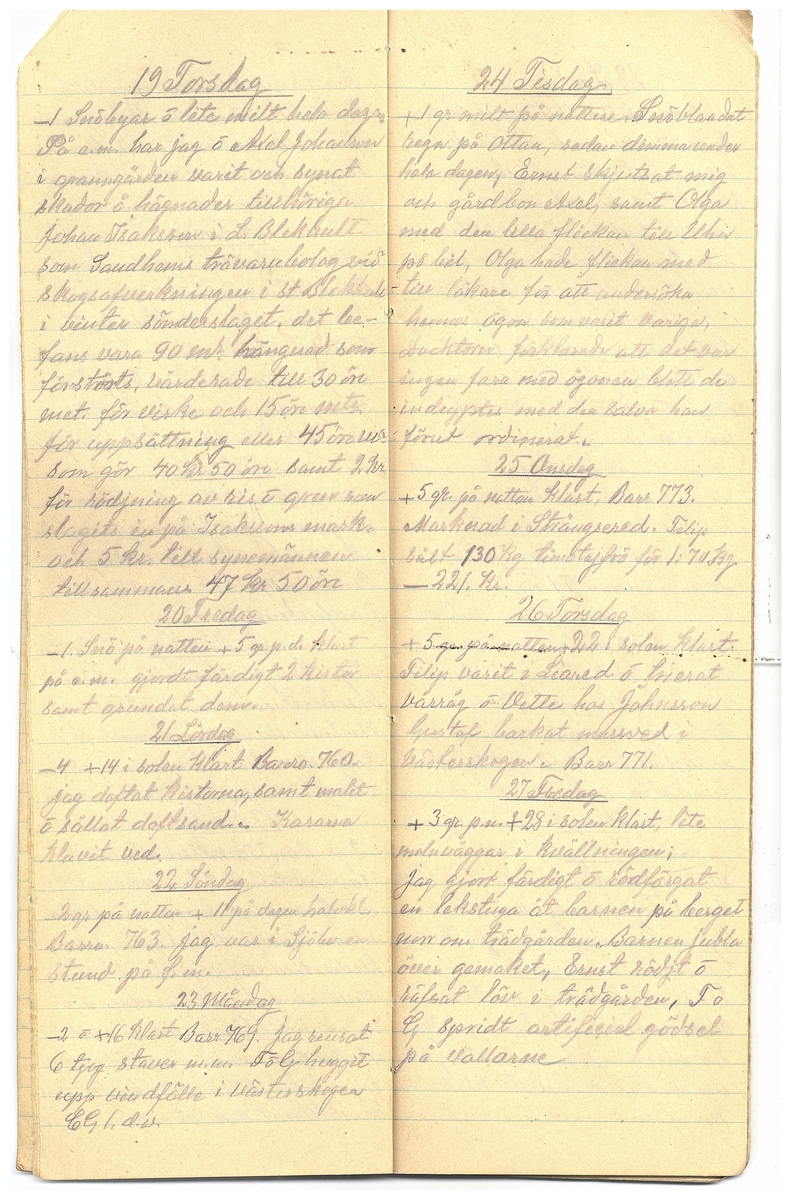 19 Torsdag
-1 Snöbyar ö lite milt hela dagen
På e.m. har jag ö Axel Johanson
i granngården varit och synat
skador å hägnader tillhöriga
Johan Isaksson i L. Blekhult
som Sandhems trävarubolag vid
skogsafverkningen i st Blekhult
i vinter sönderslaget. det be-
fans vara 90 mtr hängnad som
förstörts, värderade till 30 öre
met. för virke och 15 öre mtr
för uppsättning eller 45 öre
som gör 40 kr 50 öre samt 2 kr
för rödjning av ris ö gren som
slagits in på Isakssons mark.
och 5 kr. till synemännen
tillsammans 47 kr 50 öre
20 Fredag
-1. Snö på natten +5 gr. p.d. klart
på e.m. gjordt färdigt 2 kistor
samt grundat dem.
21 Lördag
-4 +14 i solen klart Barro. 760.
jag daftat kistorna, samt malet
ö sållat daftsand. Kararna
klavit ved.
22 Söndag
-2 gr på natten + 11 på dagen halvkl.
Barro. 763. jag var i Sjöbo en
stund på f.m.
23 Måndag
-2 ö +16 klart Barr 769. jag rensat
6 tjog staver m.m. F ö G hugget
upp vindfälle i västerskogen
EG l. d. v.
24 Tisdag
+1 gr milt på natten. Snöblandat
regn på Ottan, sedan dimma under
hela dagen, Ernst skjutsat mig
och gårdbon Axel, samt Olga
med den lilla flickan till Uhn
på bil, Olga hade flickan med
till läkare för att undersöka
hennes ögon som varit variga,
Docktorn förklarade att det var
ingen fara med ögonen blott de
indryptes med den salva han
förut ordinerat.
25 Onsdag
+5 gr. på natten klart, Barr 773.
Marknad i Strängsered. Filip
sålt 130 kg timotejfrö för 1:70 kg
- 221. kr.
26 Torsdag
+5 gr. på natten +22 i solen klart.
Filip varit i Liared ö hierat
vårråg ö Vette hos Johnsson
Gustaf barkat massved i
Västerskogen. Barr 771.
27 Fredag
+3 gr. p.n. +28 i solen klart, lite
molnväggar i kvällningen;
Jag gjort färdigt ö rödfärgat
en lekstuga åt barnen på berget
norr om trädgården. Barnen jubla
över gemaket, Ernst rödjt ö
räfsat löv i trädgården, F ö
G spridt artificiel gödsel
på vallarne